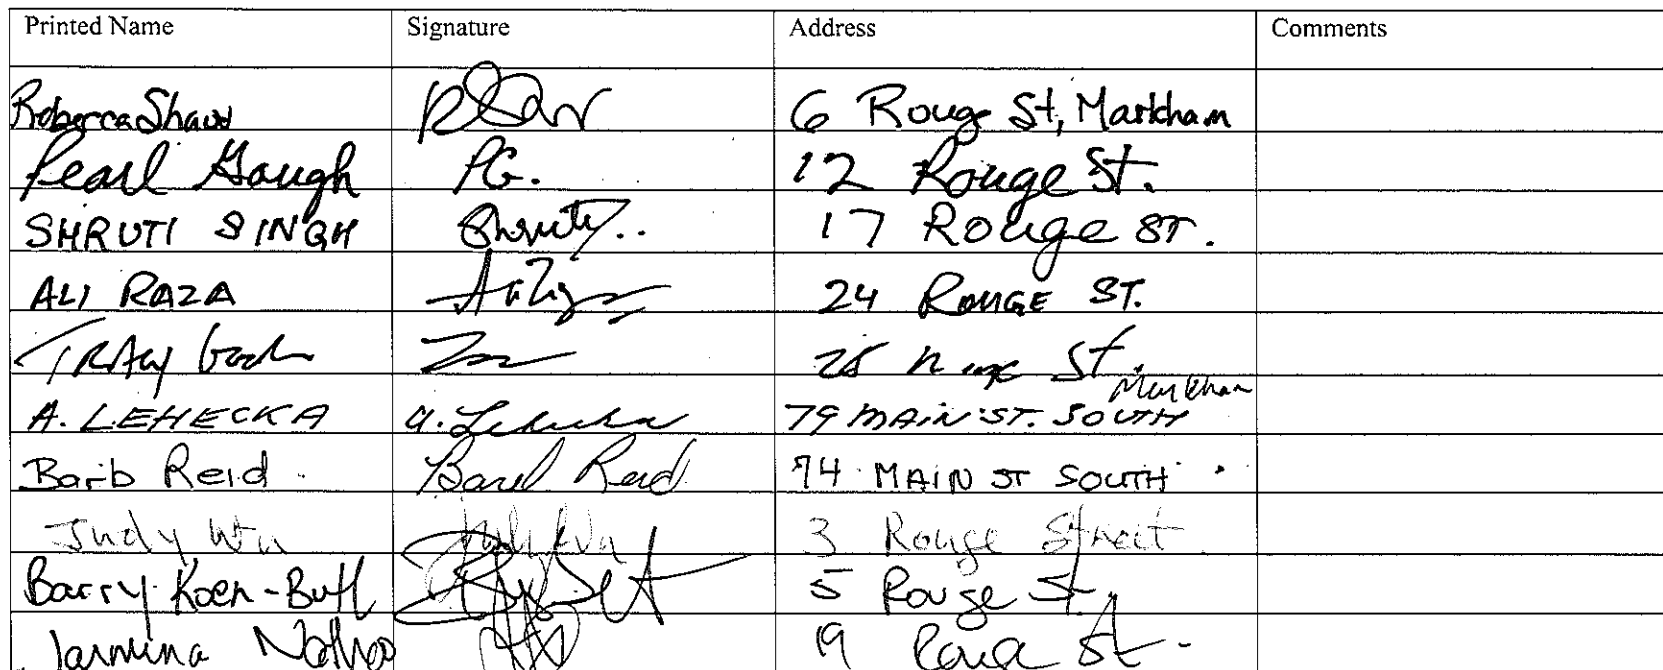 Printed Name Signature Address Comments
Rebecca Shaw 6 Rouge St, Markham
Pearl Gough PG. 12 Rouge St.
SHRUTI SINGH Shruti.. 17 Rouge ST.
ALI RAZA 24 ROUGE ST.
TRACY St. Markham
A. LEHECKA A. Lehecka 79 MAIN ST. SOUTH
Barb Reid Barb Reid 74 MAIN ST SOUTH
Judy Wu Judy Wu 3 Rouge Street
Barry Koen-Butt 5 Rouge St.
Jasmina Nathoo 19 Rouge St.